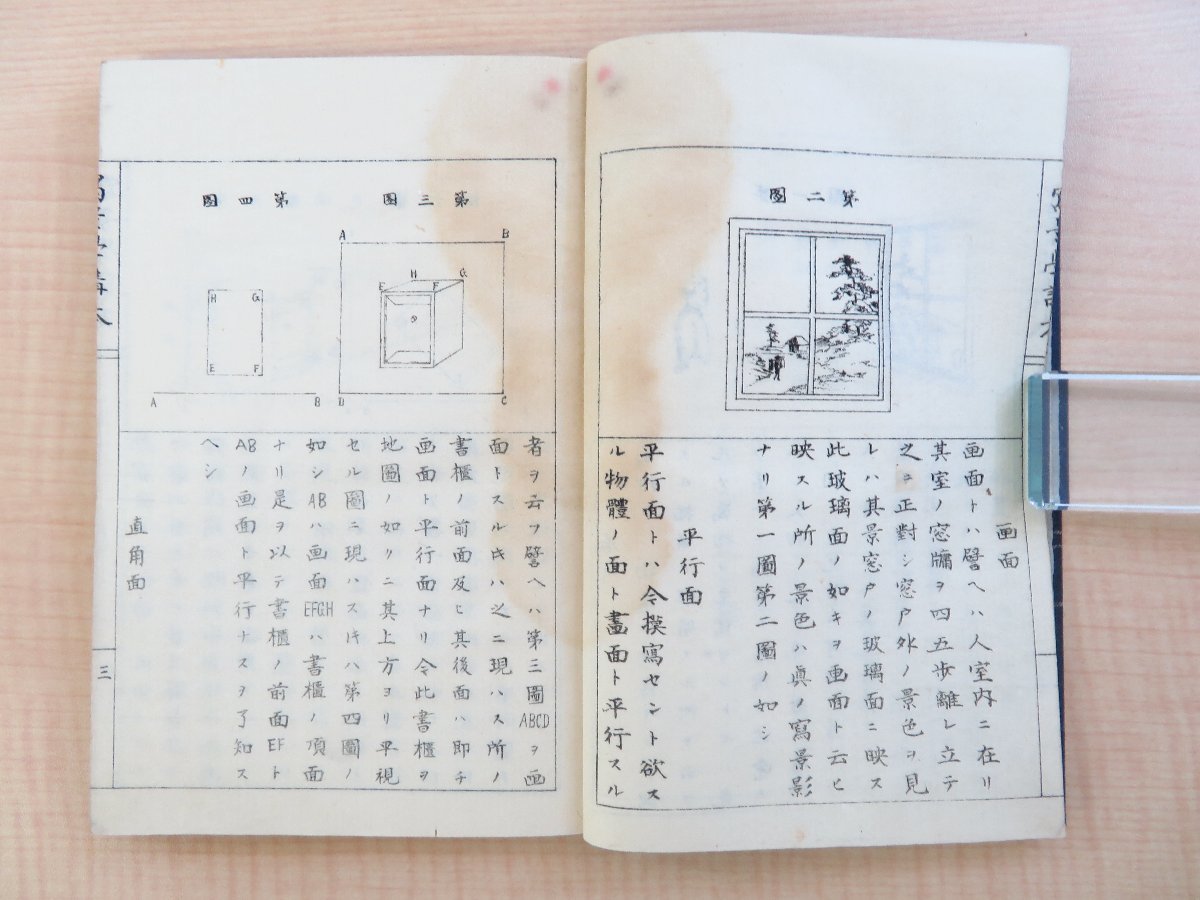 第二圖
画面
画面トハ譬ヘハ人室内ニ在リ
其室ノ窓牖ヲ四五歩離レ立テ
之ニ正對シ窓戸外ノ景色ヲ見
レハ其景窓戸ノ玻璃面ニ映ス
此玻璃面ノ如キヲ画面ト云ヒ
映スル所ノ景色ハ眞ノ寫景影
ナリ第一圖第二圖ノ如シ
平行面
平行面トハ今摸寫セント欲ス
ル物體ノ面ト畫面ト平行スル
第三圖
A B
H G
E F
D C
第四圖
H G
E F
A B
者ヲ云フ譬ヘハ第三圖ABCDヲ画
面トスルキハ之ニ現ハス所ノ
書櫃ノ前面及ヒ其後面ハ即チ
画面ト平行面ナリ今此書櫃ヲ
地圖ノ如リニ其上方ヨリ平視
セル圖ニ現ハスキハ第四圖ノ
如シABハ画面EFGHハ書櫃ノ頂面
ナリ是ヲ以テ書櫃ノ前面EFト
ABノ画面ト平行ナスヲ了知ス
ヘシ
直角面
三